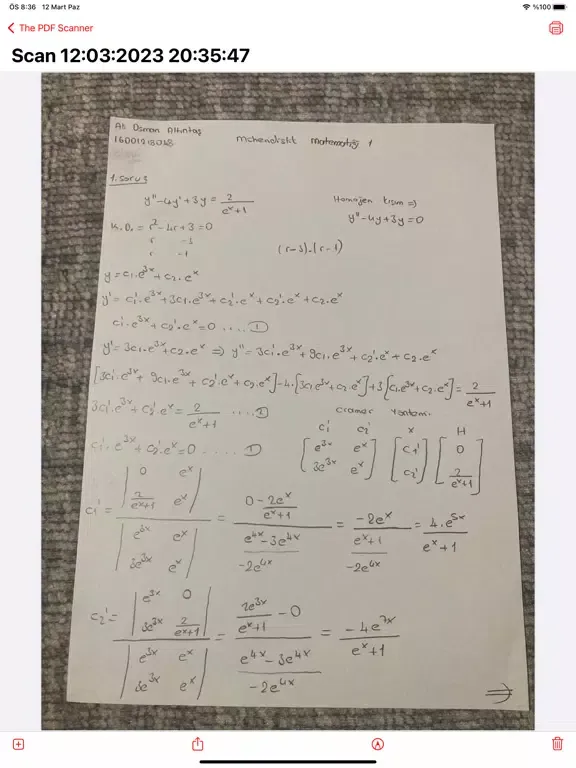 ÖS 8:36 12 Mart Paz %100
The PDF Scanner
Scan 12:03:2023 20:35:47
Ali Osman Altıntaş
Mühendislik Matematiği 1
1.soru:
y''-4y'+3y = 2/(e^x+1)
Homojen kısım =>
y''-4y+3y=0
K.D. = r²-4r+3=0
r -3
r -1
(r-3).(r-1)
y = c₁.e^3x + c₂.e^x
y' = c₁'.e^3x + 3c₁.e^3x + c₂'.e^x + c₂.e^x
c₁'.e^3x + c₂'.e^x = 0 .... ①
y' = 3c₁.e^3x + c₂.e^x => y'' = 3c₁'.e^3x + 9c₁.e^3x + c₂'.e^x + c₂.e^x
[3c₁'.e^3x + 9c₁.e^3x + c₂'.e^x + c₂.e^x] - 4.[3c₁.e^3x + c₂.e^x] + 3[c₁.e^3x + c₂.e^x] = 2/(e^x+1)
3c₁'.e^3x + c₂'.e^x = 2/(e^x+1) .... ②
Cramer Yöntemi
c₁'.e^3x + c₂'.e^x = 0 ..... ①
c₁' c₂' x H
[e^3x e^x; 3e^3x e^x] [c₁'; c₂'] [0; 2/(e^x+1)]
c₁' = |0 e^x; 2/(e^x+1) e^x| / |e^3x e^x; 3e^3x e^x| = (0 - 2e^x/(e^x+1)) / (e^4x - 3e^4x) = (-2e^x/(e^x+1)) / (-2e^4x) = 4.e^5x/(e^x+1)
-2e^4x
c₂' = |e^3x 0; 3e^3x 2/(e^x+1)| / |e^3x e^x; 3e^3x e^x| = (2e^3x/(e^x+1) - 0) / (e^4x - 3e^4x) = -4e^7x/(e^x+1)
-2e^4x
=>